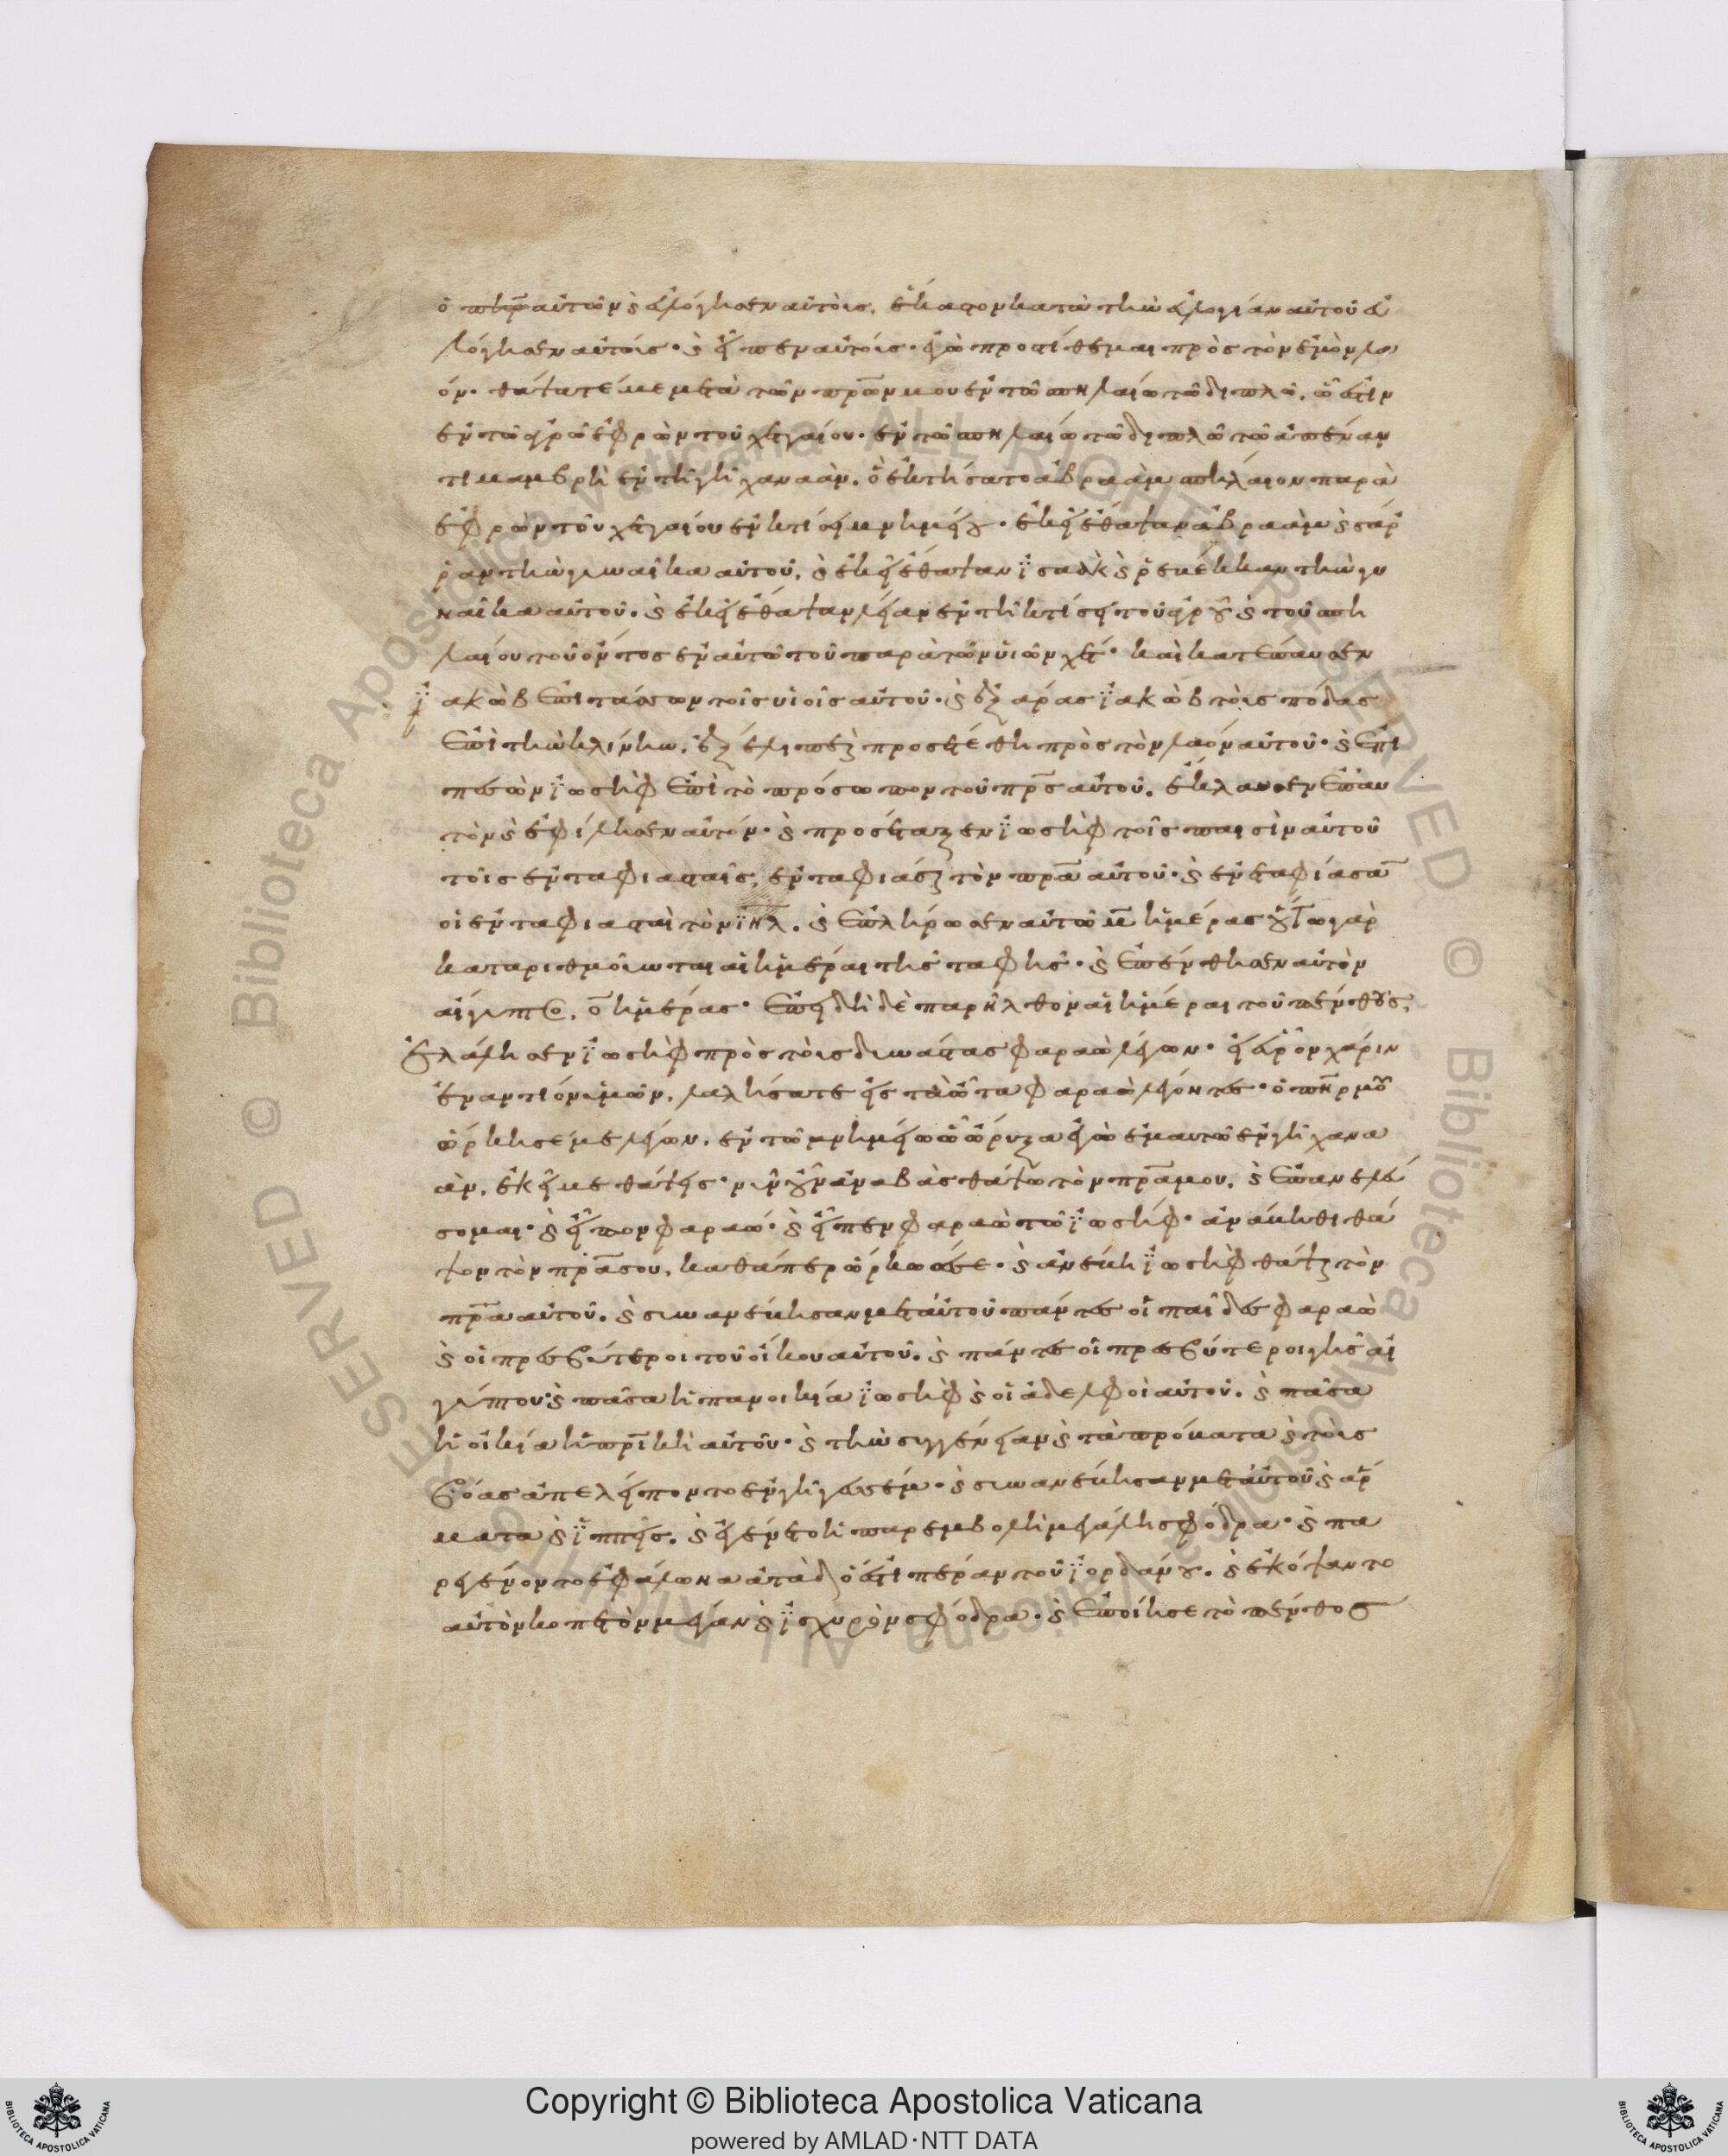 ὁ πηρ αὐτῶν καὶ εὐλόγησεν αὐτοὺς. ἕκαστον κατὰ τὴν εὐλογίαν αὐτοῦ εὐ
λόγησεν αὐτούς· καὶ εἶπεν αὐτοῖς· ἐγὼ προστίθεμαι πρὸς τὸν ἐμὸν λα
όν· θάψατέ με μετὰ τῶν πρων μου ἐν τῶ σπηλαίω τῶ διπλῶ, ὅ ἐστιν
ἐν τῶ ἀγρῶ ἐφρὼν τοῦ χετταίου· ἐν τῶ σπηλαίω τῶ διπλῶ τῶ ἀπέναν
τι μαμβρὴ ἐν τῆ γῆ χαναάν. ὃ ἐκτήσατο ἀβραὰμ σπήλαιον παρὰ
ἐφρὼν τοῦ χετταίου ἐν κτήσει μνημείου· ἐκεῖ ἔθαψαν ἀβραὰμ καὶ σάρ
ραν τὴν γυναῖκα αὐτοῦ, καὶ ἐκεῖ ἔθαψαν ϊσαὰκ καὶ ῥεβέκκαν τὴν γυ
ναῖκα αὐτοῦ. καὶ ἐκεῖ ἔθαψαν λείαν ἐν τῆ κτήσει τοῦ ἀγροῦ καὶ τοῦ σπη
λαίου τοῦ ὄντος ἐν αὐτῶ τοῦ παρὰ τῶν υἱῶν χέτ· καὶ κατέπαυσεν
ϊακὼβ ἐπιτάσσων τοῖς υἱοῖς αὐτοῦ· καὶ ἐξάρας ϊακὼβ τοὺς πόδας
ἐπὶ τὴν κλίνην, ἐξέλιπεν καὶ προσετέθη πρὸς τὸν λαὸν αὐτοῦ· καὶ ἐπι
πεσὼν ϊωσὴφ ἐπὶ τὸ πρόσωπον τοῦ πρς αὐτοῦ. ἔκλαυσεν ἐπ' αὐ
τὸν καὶ ἐφίλησεν αὐτόν· καὶ προσέταξεν ϊωσὴφ τοῖς παισὶν αὐτοῦ
τοῖς ἐνταφιασταῖς, ἐνταφιάσαι τὸν πρα αὐτοῦ· καὶ ἐνεταφίασαν
οἱ ἐνταφιασταὶ τὸν ϊηλ. καὶ ἐπλήρωσεν αὐτῶ μ ἡμέρας οὕτω γὰρ
καταριθμοῦνται αἱ ἡμέραι τῆς ταφῆς· καὶ ἐπένθησεν αὐτὸν
αἴγυπτος, ο ἡμέρας· ἐπειδὴ δὲ παρῆλθον αἱ ἡμέραι τοῦ πένθους,
ἐλάλησεν ϊωσὴφ πρὸς τοὺς δυνάστας φαραὼ λέγων· εἰ εὗρον χάριν
ἐναντίον ὑμῶν, λαλήσατε εἰς τὰ ὦτα φαραὼ λέγοντες· ὁ πηρ μου
ὥρκισέ με λέγων, ἐν τῶ μνημείω ὧ ὤρυξα ἐγὼ ἐμαυτῶ ἐν γῆ χανα
άν, ἐκεῖ με θάψεις· νῦν οὖν ἀναβὰς θάψω τὸν πρα μου, καὶ ἐπανελεύ
σομαι· καὶ εἶπον φαραώ· καὶ εἶπεν φαραὼ τῶ ϊωσήφ· ἀνάβηθι θά
ψον τὸν πρα σου, καθάπερ ὥρκωσέ σε· καὶ ἀνέβη ϊωσὴφ θάψαι τὸν
πρα αὐτοῦ. καὶ συνανέβησαν μετ' αὐτοῦ πάντες οἱ παῖδες φαραὼ
καὶ οἱ πρεσβύτεροι τοῦ οἴκου αὐτοῦ. καὶ πάντες οἱ πρεσβύτεροι γῆς αἰ
γύπτου· καὶ πᾶσα ἡ πανοικία ϊωσὴφ καὶ οἱ ἀδελφοὶ αὐτοῦ. καὶ πᾶσα
ἡ οἰκία ἡ πρικὴ αὐτοῦ· καὶ τὴν συγγένειαν καὶ τὰ πρόβατα καὶ τοὺς
βόας ἀπελείποντο ἐν γῆ γεσέμ· καὶ συνανέβησαν μετ' αὐτοῦ καὶ ἅρ
ματα καὶ ϊππεῖς. καὶ ἐγένετο ἡ παρεμβολὴ μεγάλη σφόδρα· καὶ πα
ρεγένοντο ἐφ' ἅλωνα ἀτὰδ ὅ ἐστι πέραν τοῦ ϊορδάνου. καὶ ἐκόψαντο
αὐτὸν κοπετὸν μέγαν καὶ ϊσχυρὸν σφόδρα· καὶ ἐποίησε τὸ πένθος
Copyright © Biblioteca Apostolica Vaticana
powered by AMLAD·NTT DATA